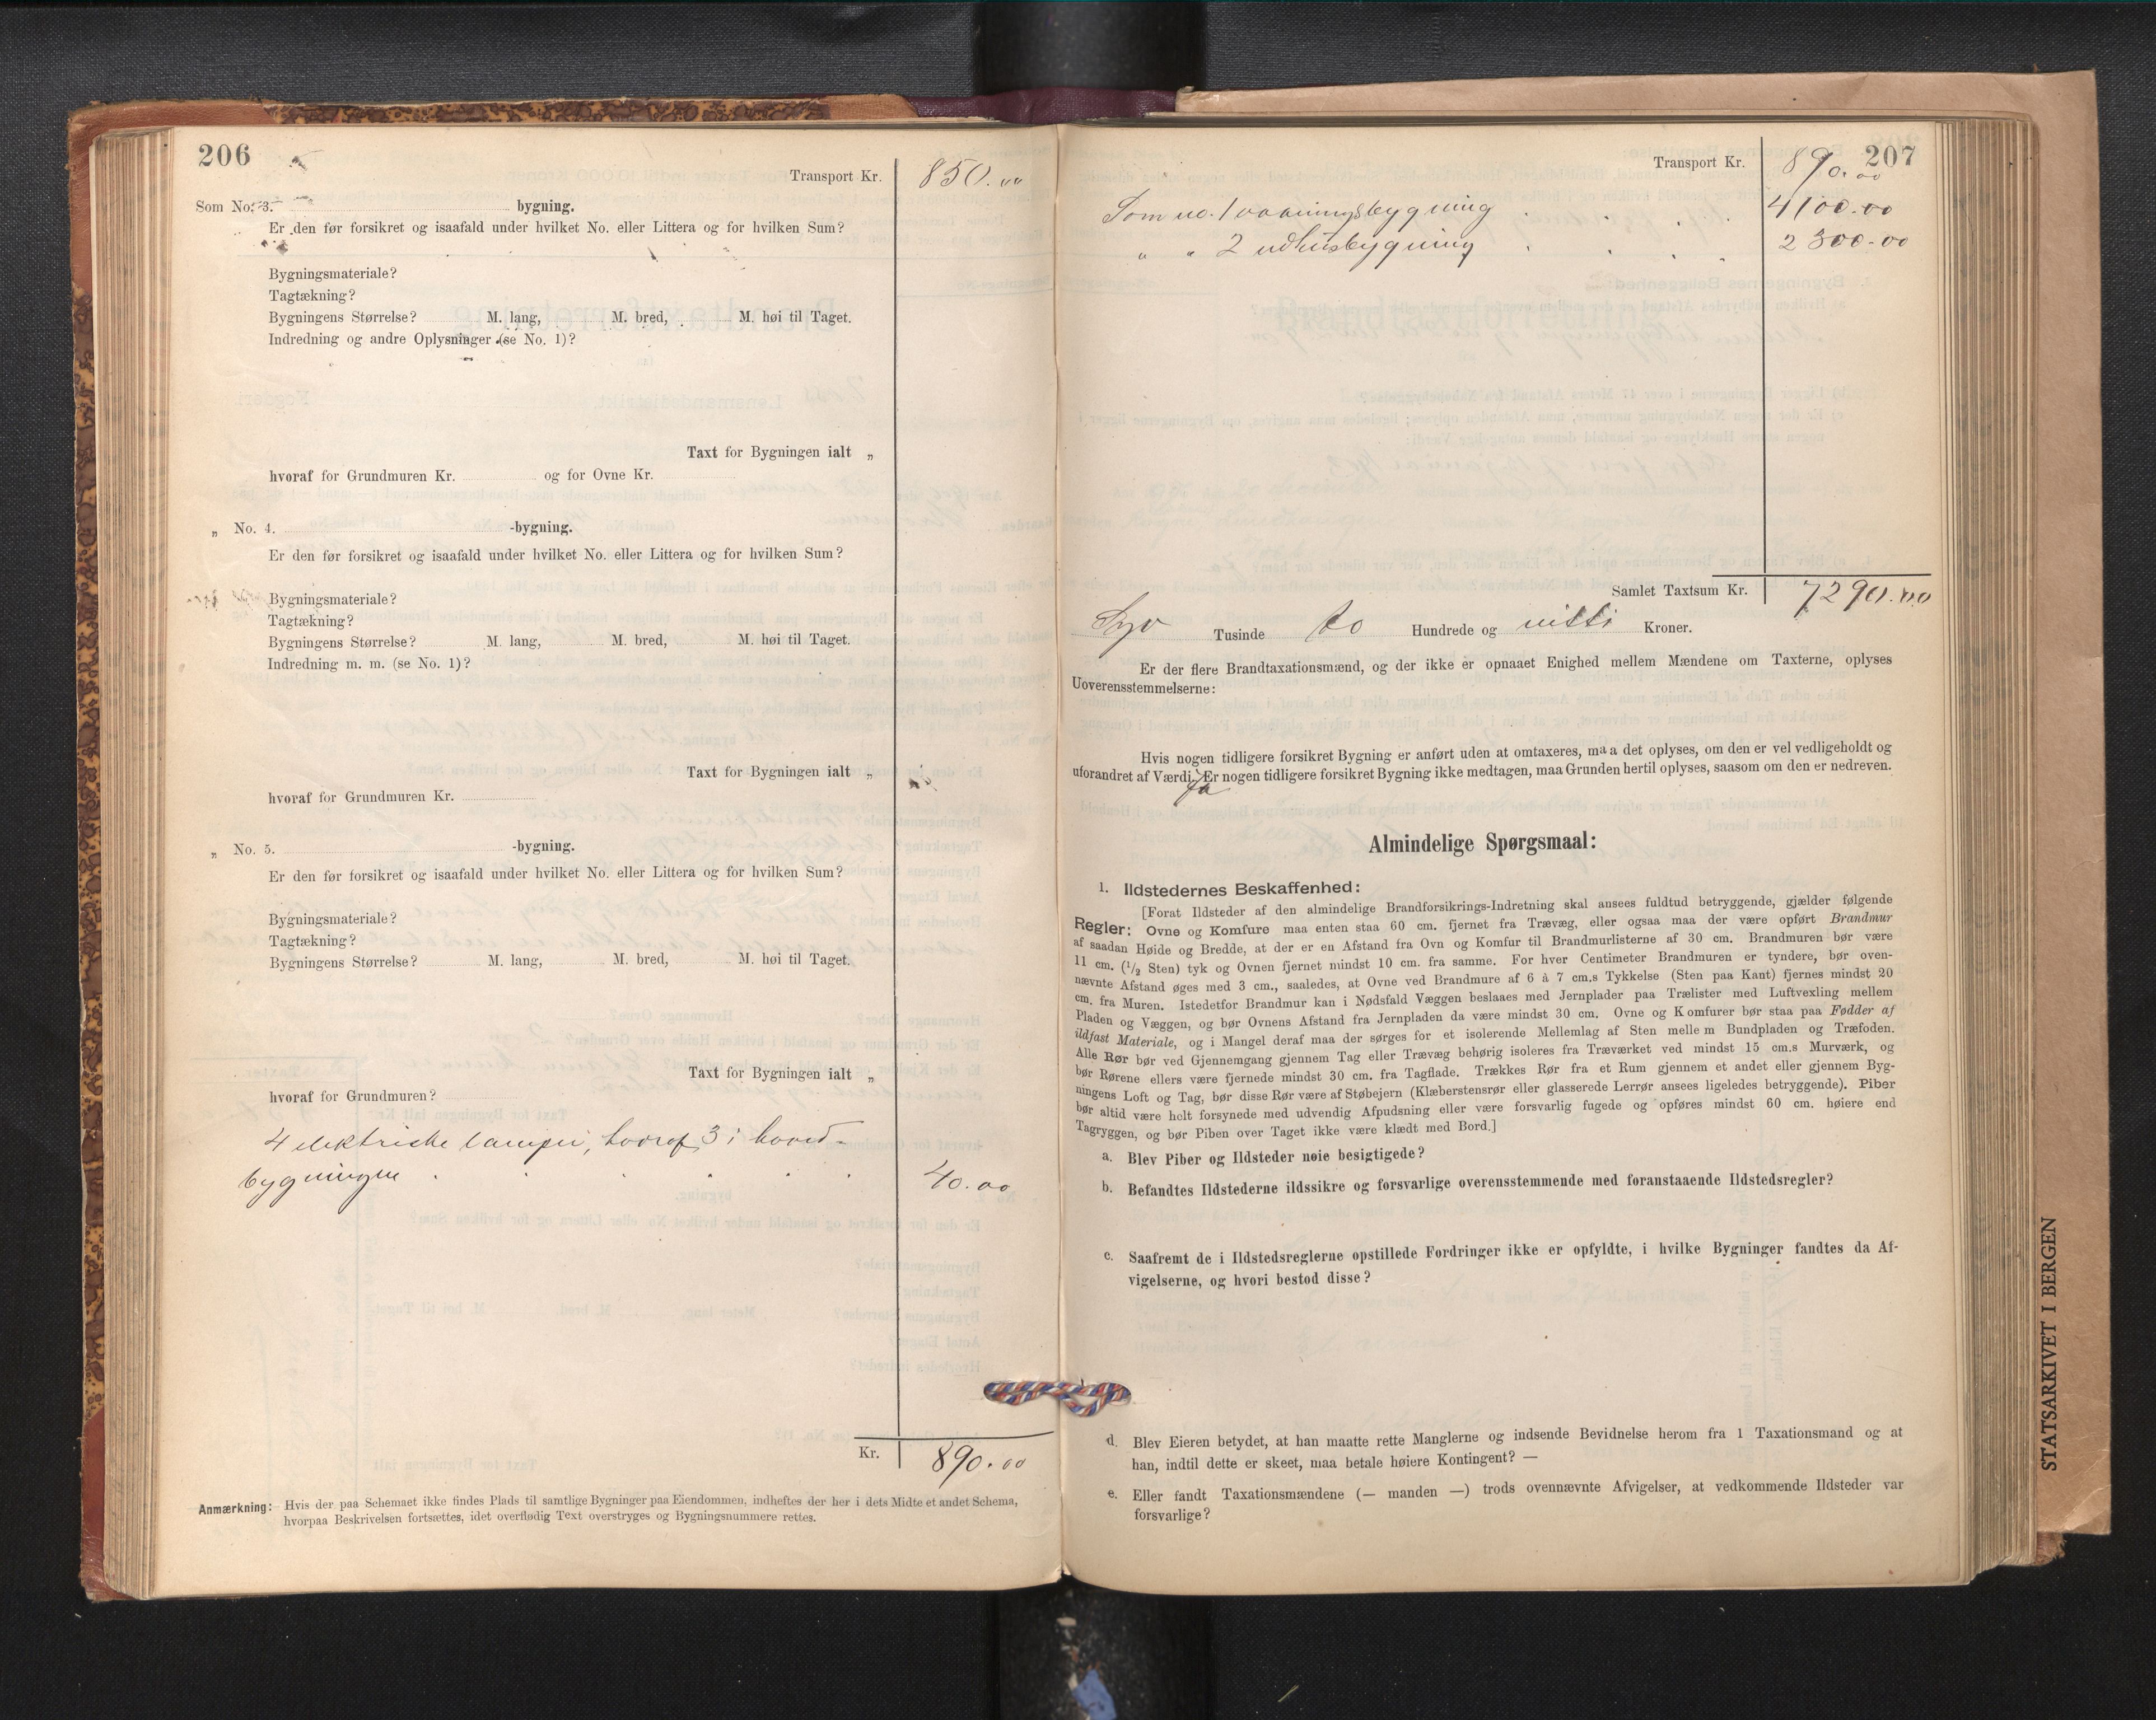 206
Transport Kr. 850.00
Som No. 3. bygning.
Er den før forsikret og isaafald under hvilket No. eller Littera og for hvilken Sum?
Bygningsmateriale?
Tagtækning?
Bygningens Størrelse? M. lang, M. bred, M. høi til Taget.
Indredning og andre Oplysninger (se No. 1)?
Taxt for Bygningen ialt „
hvoraf for Grundmuren Kr. og for Ovne Kr.
„ No. 4. -bygning.
Er den før forsikret og isaafald under hvilket No. eller Littera og for hvilken Sum?
Bygningsmateriale?
Tagtækning?
Bygningens Størrelse? M. lang, M. bred, M. høi til Taget.
Indredning m. m. (se No. 1)?
Taxt for Bygningen ialt „
hvoraf for Grundmuren Kr.
„ No. 5. -bygning.
Er den før forsikret og isaafald under hvilket No. eller Littera og for hvilken Sum?
Bygningsmateriale?
Tagtækning?
Bygningens Størrelse? M. lang, M. bred, M. høi til Taget.
Taxt for Bygningen ialt „
hvoraf for Grundmuren?
4 elektriske lamper, hvoraf 3 i hoved-
bygningen . . . . . 40.00
Kr. 890.00
Anmærkning: Hvis der paa Schemaet ikke findes Plads til samtlige Bygninger paa Eiendommen, indheftes der her i dets Midte et andet Schema,
hvorpaa Beskrivelsen fortsættes, idet overflødig Text overstryges og Bygningsnummere rettes.
207
Transport Kr. 890.00
Som no. 1 vaaningsbygning . . . 4100.00
„ „ 2 udhusbygning . . . . 2300.00
Samlet Taxtsum Kr. 7290.00
Syv Tusinde to Hundrede og nitti Kroner.
Er der flere Brandtaxationsmænd, og der ikke er opnaaet Enighed mellem Mændene om Taxterne, oplyses
Uoverensstemmelserne:
Hvis nogen tidligere forsikret Bygning er anført uden at omtaxeres, maa det oplyses, om den er vel vedligeholdt og
uforandret af Værdi. Er nogen tidligere forsikret Bygning ikke medtagen, maa Grunden hertil oplyses, saasom om den er nedreven.
Ja
Almindelige Spørgsmaal:
1. Ildstedernes Beskaffenhed:
[Forat Ildsteder af den almindelige Brandforsikrings-Indretning skal ansees fuldtud betryggende, gjælder følgende
Regler: Ovne og Komfure maa enten staa 60 cm. fjernet fra Trævæg, eller ogsaa maa der være opført Brandmur
af saadan Høide og Bredde, at der er en Afstand fra Ovn og Komfur til Brandmurlisterne af 30 cm. Brandmuren bør være
11 cm. (1/2 Sten) tyk og Ovnen fjernet mindst 10 cm. fra samme. For hver Centimeter Brandmuren er tyndere, bør oven-
nævnte Afstand øges med 3 cm., saaledes, at Ovne ved Brandmure af 6 à 7 cm.s Tykkelse (Sten paa Kant) fjernes mindst 20
cm. fra Muren. Istedetfor Brandmur kan i Nødsfald Væggen beslaaes med Jernplader paa Trælister med Luftvexling mellem
Pladen og Væggen, og bør Ovnens Afstand fra Jernpladen da være mindst 30 cm. Ovne og Komfurer bør staa paa Fødder af
ildfast Materiale, og i Mangel deraf maa der sørges for et isolerende Mellemlag af Sten mellem Bundpladen og Træfoden.
Alle Rør bør ved Gjennemgang gjennem Tag eller Trævæg behørig isoleres fra Træværket ved mindst 15 cm.s Murværk, og
bør Rørene ellers være fjernede mindst 30 cm. fra Tagflade. Trækkes Rør fra et Rum gjennem et andet eller gjennem Byg-
ningens Loft og Tag, bør disse Rør være af Støbejern (Klæberstensrør eller glasserede Lerrør ansees ligeledes betryggende). Piber
bør altid være helt forsynede med udvendig Afpudsning eller være forsvarlig fugede og opføres mindst 60 cm. høiere end
Tagryggen, og bør Piben over Taget ikke være klædt med Bord.]
a. Blev Piber og Ildsteder nøie besigtigede?
b. Befandtes Ildstederne ildssikre og forsvarlige overensstemmende med foranstaaende Ildstedsregler?
c. Saafremt de i Ildstedsreglerne opstillede Fordringer ikke er opfyldte, i hvilke Bygninger fandtes da Af-
vigelserne, og hvori bestod disse?
d. Blev Eieren betydet, at han maatte rette Manglerne og indsende Bevidnelse herom fra 1 Taxationsmand og at
han, indtil dette er skeet, maa betale høiere Kontingent? —
e. Eller fandt Taxationsmændene (— manden —) trods ovennævnte Afvigelser, at vedkommende Ildsteder var
forsvarlige?
STATSARKIVET I BERGEN